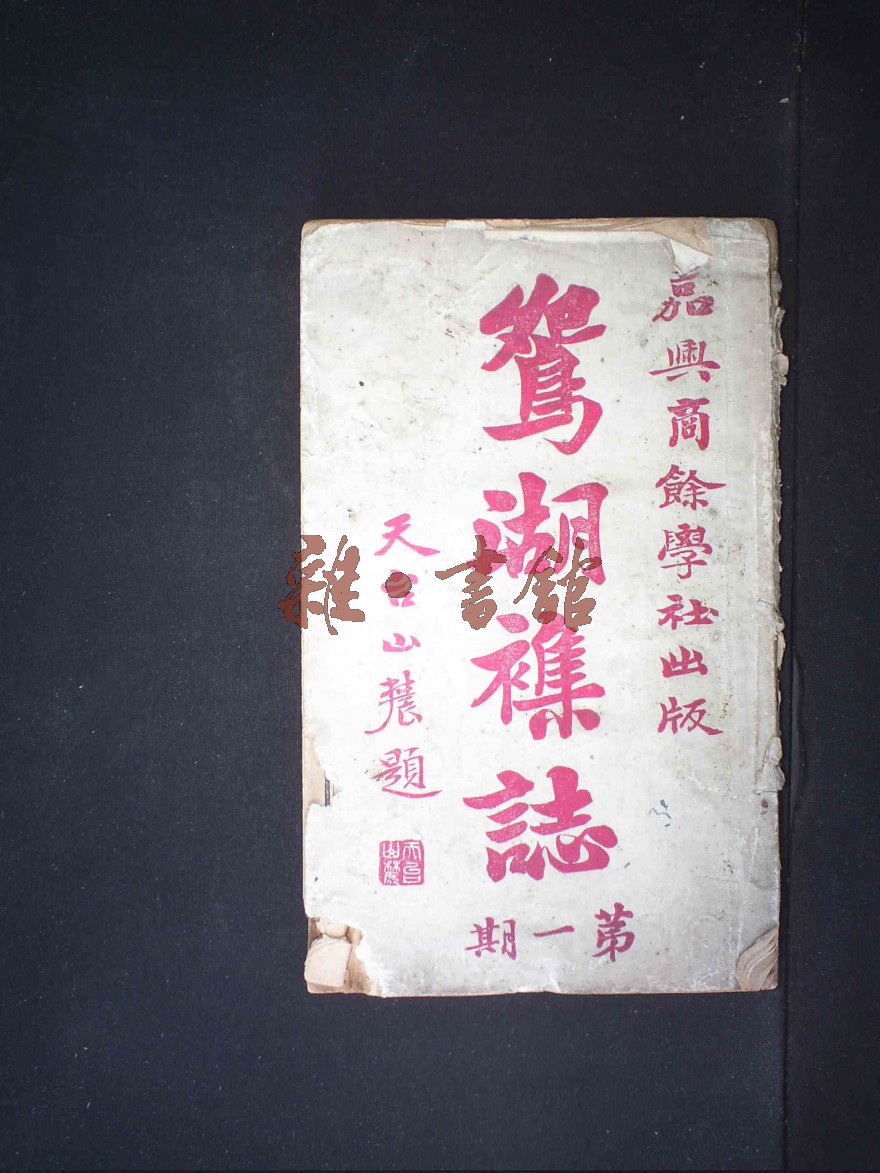 嘉興商餘學社出版
鴛湖襍誌
第一期
天台山農題
天台山農
雜·書館